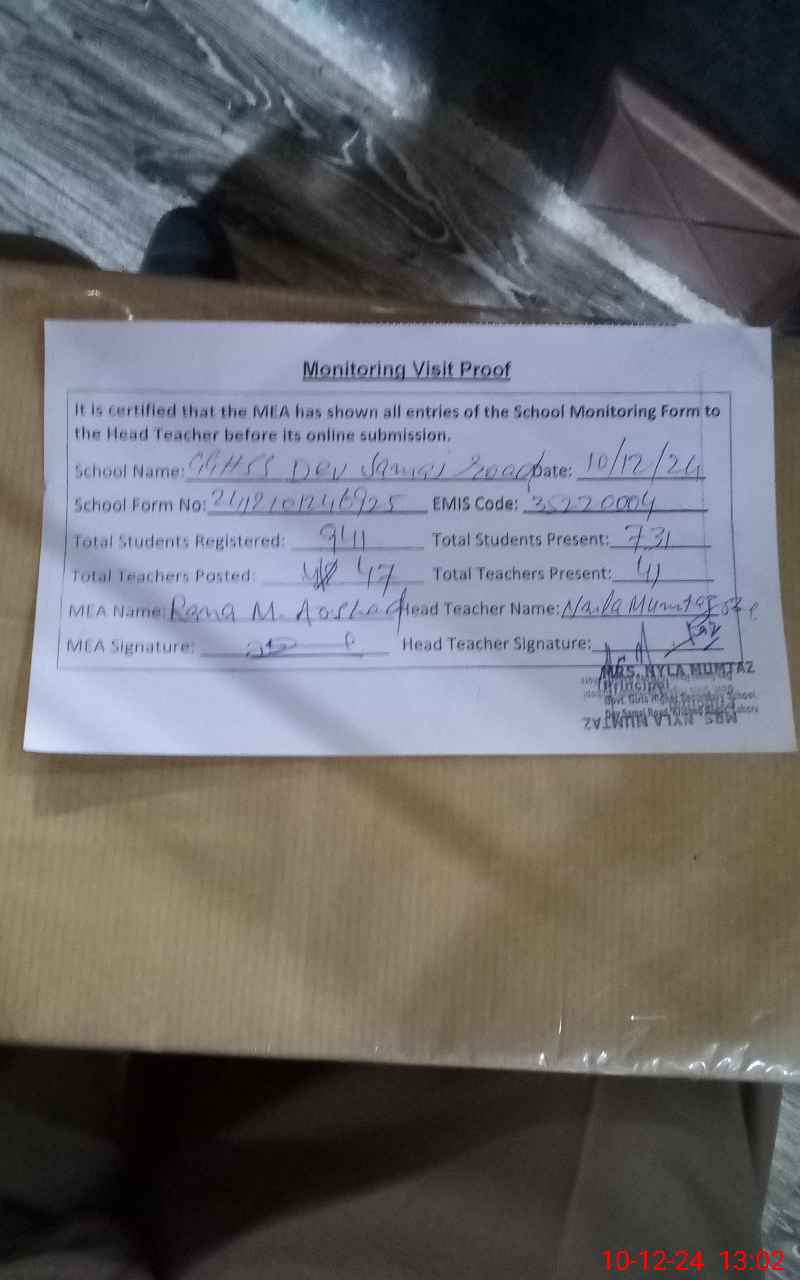 Monitoring Visit Proof
It is certified that the MEA has shown all entries of the School Monitoring Form to
the Head Teacher before its online submission.
School Name: GGHSS Dev Samaj Road Date: 10/12/24
School Form No: EMIS Code: 35220004
Total Students Registered: 941 Total Students Present: 731
Total Teachers Posted: 47 Total Teachers Present: 41
MEA Name: Rana M. Head Teacher Name: Naila Mumtaz
MEA Signature: Head Teacher Signature:
MRS. NYLA MUMTAZ
Principal
Govt. Girls Higher Secondary School
Dev Samaj Road, Lahore
MRS. NYLA MUMTAZ
10-12-24 13:02